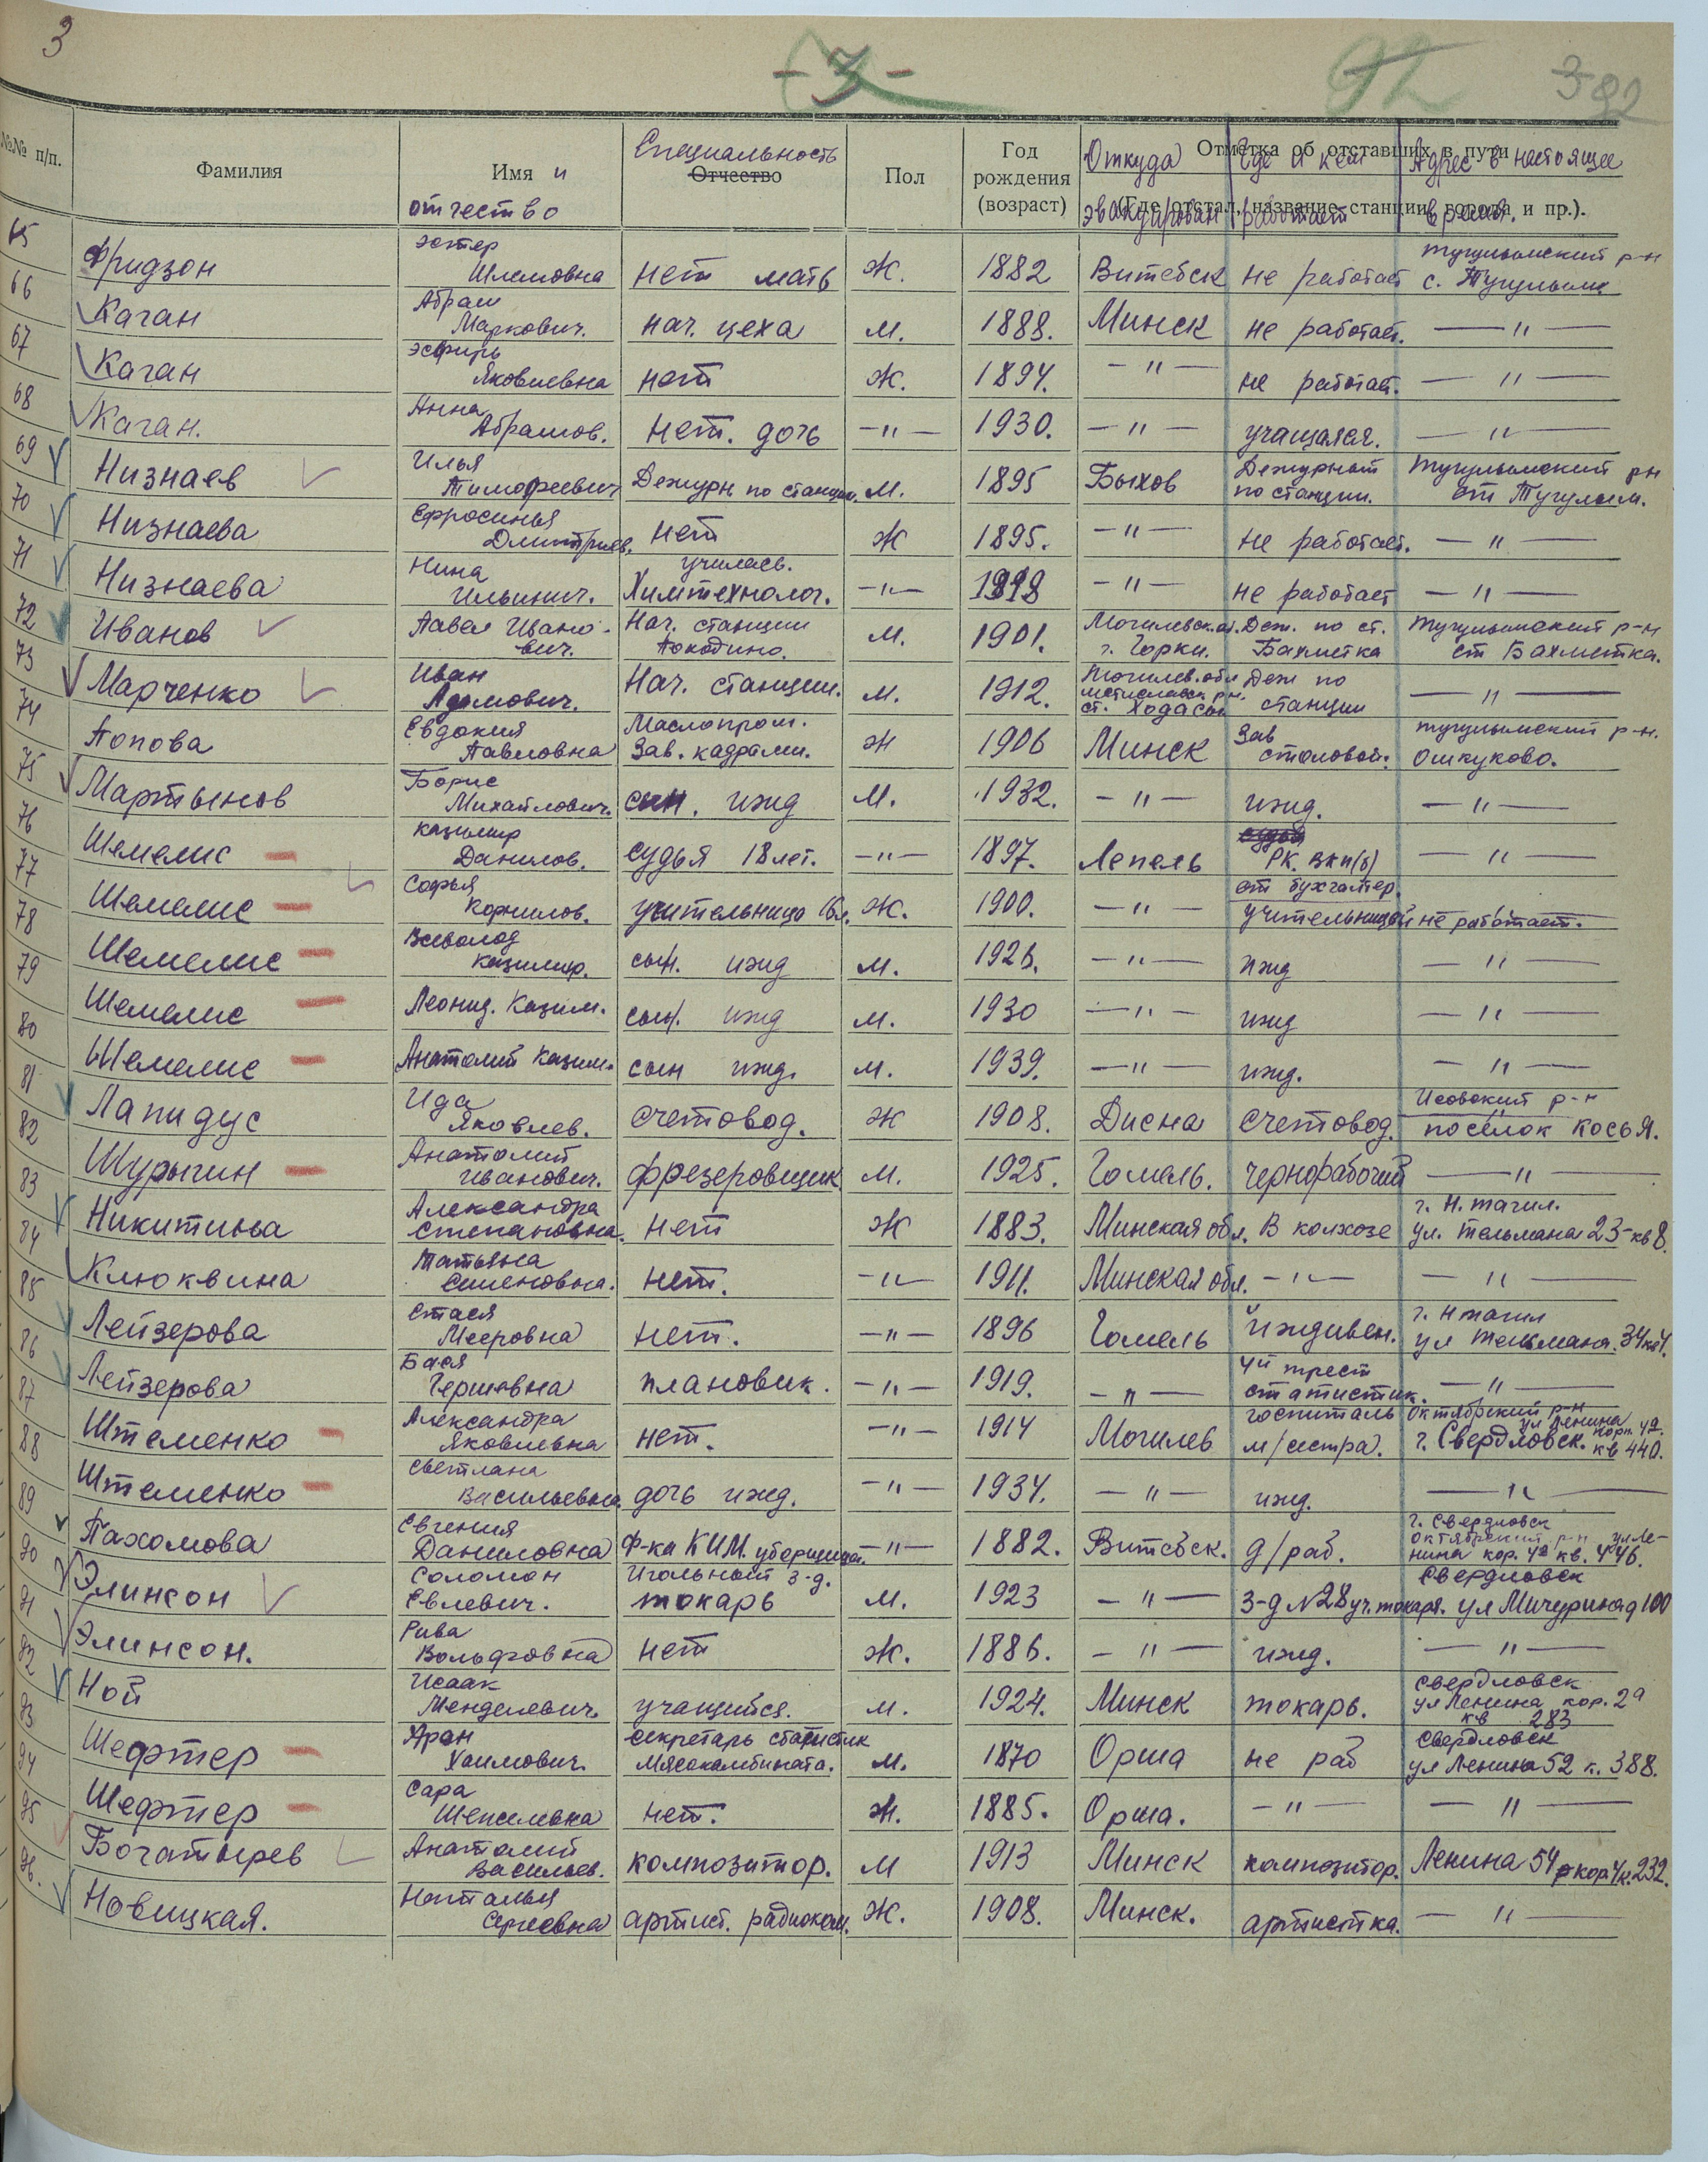 3
- 3 -
92
392
№№ п/п. Фамилия Имя и отчество Специальность Отчество Пол Год рождения (возраст) Отметка об отставших в пути (Где отстал, название станции, города и пр.).
Откуда эвакуирован Где и кем работает Адрес в настоящее время.
65 Фридзон Эстер Шлемовна нет мать Ж. 1882 Витебск не работает Тугулымский р-н с. Тугулым
66 Каган Абрам Маркович. нач. цеха М. 1888. Минск не работает. — " —
67 Каган Эсфирь Яковлевна нет Ж. 1894. — " — не работает. — " —
68 Каган. Анна Абрамов. нет. дочь — " — 1930. — " — учащаяся. — " —
69 Низнаев Илья Тимофеевич Дежурн по станции. М. 1895 Быхов Дежурный по станции. Тугулымский рн ст Тугулым.
70 Низнаева Ефросинья Дмитриев. нет Ж 1895. — " — не работает. — " —
71 Низнаева Нина Ильинич. училась. Химтехнолог. — " — 1919 — " — не работает — " —
72 Иванов Павел Иванович. Нач. станции М. 1901. Могилевск. об. г. Горки. Деж. по ст. Бахметка Тугулымский р-н ст Бахметка.
73 Марченко Иван Адамович. Нач. станции. М. 1912. Могилев. обл мстиславск рн. ст. Ходасы Деж по станции — " —
74 Попова Евдокия Павловна Маслопром. Зав. кадрами. Ж 1906 Минск Зав столовой. Тугулымский р-н. Ошкуково.
75 Мартынов Борис Михайлович. сын. ижд М. 1932. — " — ижд. — " —
76 Шемелис Казимир Данилов. судья 18 лет. — " — 1897. Лепель РК. ВКП(б) — " —
77 Шемелис Софья Корнилов. учительница 16л. Ж. 1900. — " — ст бухгалтер. учительницей не работает.
78 Шемелис Всеволод Казимир. сын. ижд М. 1926. — " — ижд — " —
79 Шемелис Леонид. Казим. сын. ижд М. 1930 — " — ижд — " —
80 Шемелис Анатолий Казим. сын ижд. М. 1939. — " — ижд. — " —
81 Лапидус Ида Яковлев. счетовод. Ж 1908. Дисна счетовод. Исовский р-н поселок Косья.
82 Шурыгин Анатолий Иванович. фрезеровщик М. 1925. Гомель. чернорабочий — " —
83 Никитина Александра Степановна. нет Ж 1883. Минская обл. В колхозе г. Н. Тагил. ул. Тельмана 23-кв 8.
84 Клюквина Татьяна Семеновна. нет. — " — 1911. Минская обл. — " — — " —
85 Лейзерова Стася Мееровна нет. — " — 1896 Гомель Иждивен. г. Н Тагил ул Тельмана. 34 кв 4.
86 Лейзерова Бася Гершевна плановик. — " — 1919. — " — 4й трест статистик. — " —
87 Штеменко Александра Яковлевна нет. — " — 1914 Могилев госпиталь м/сестра. Октябрский р-н ул Ленина г. Свердловск. корп. 42. кв 440.
88 Штеменко Светлана Васильевна. дочь ижд. — " — 1934. — " — ижд. — " —
89 Пахомова Евгения Даниловна Ф-ка КИМ. уборщица. — " — 1882. Витебск. д/раб. г. Свердловск Октябрский р-н ул Ленина кор. 42 кв. 446.
90 Элинсон Соломон Евлевич. Игольный з-д. токарь М. 1923 — " — З-д №28 уч. токаря. Свердловск ул Мичурина д 100
91 Элинсон. Рива Вольфовна нет Ж. 1886. — " — ижд. — " —
92 Ной Исаак Менделевич. учащийся. М. 1924. Минск токарь. Свердловск ул Ленина кор. 2а кв 283
93 Шефтер Арон Хаимович. секретарь статистик Мясокомбината. М. 1870 Орша не раб Свердловск ул Ленина 52 к. 388.
94 Шефтер Сара нет. Ж. 1885. Орша. — " — — " —
95 Богатырев Анатолий Васильев. композитор. М 1913 Минск композитор. Ленина 54 кор 4 к. 232.
96. Новицкая. Наталья Сергеевна артист. радиоком. Ж. 1908. Минск. артистка. — " —